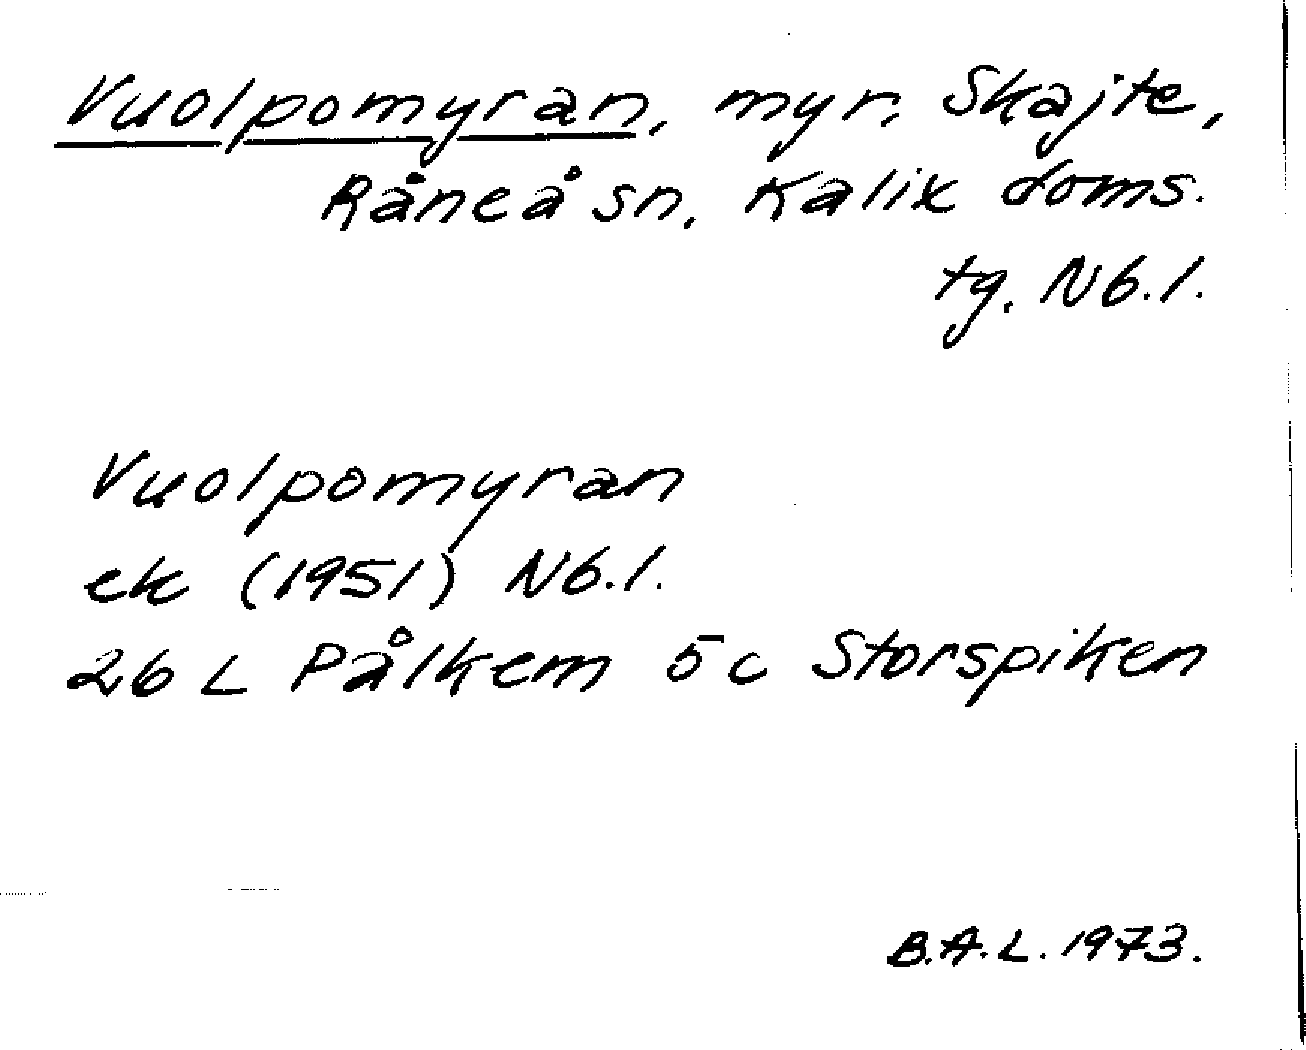 Vuolpomyran, myr, Skajte,
Råneå sn, Kalix doms.
tg. Nb.l.
Vuolpomyran
ek (1951) Nb.l.
26 L Pålkem 5c Storspiken
B.A.L. 1973.